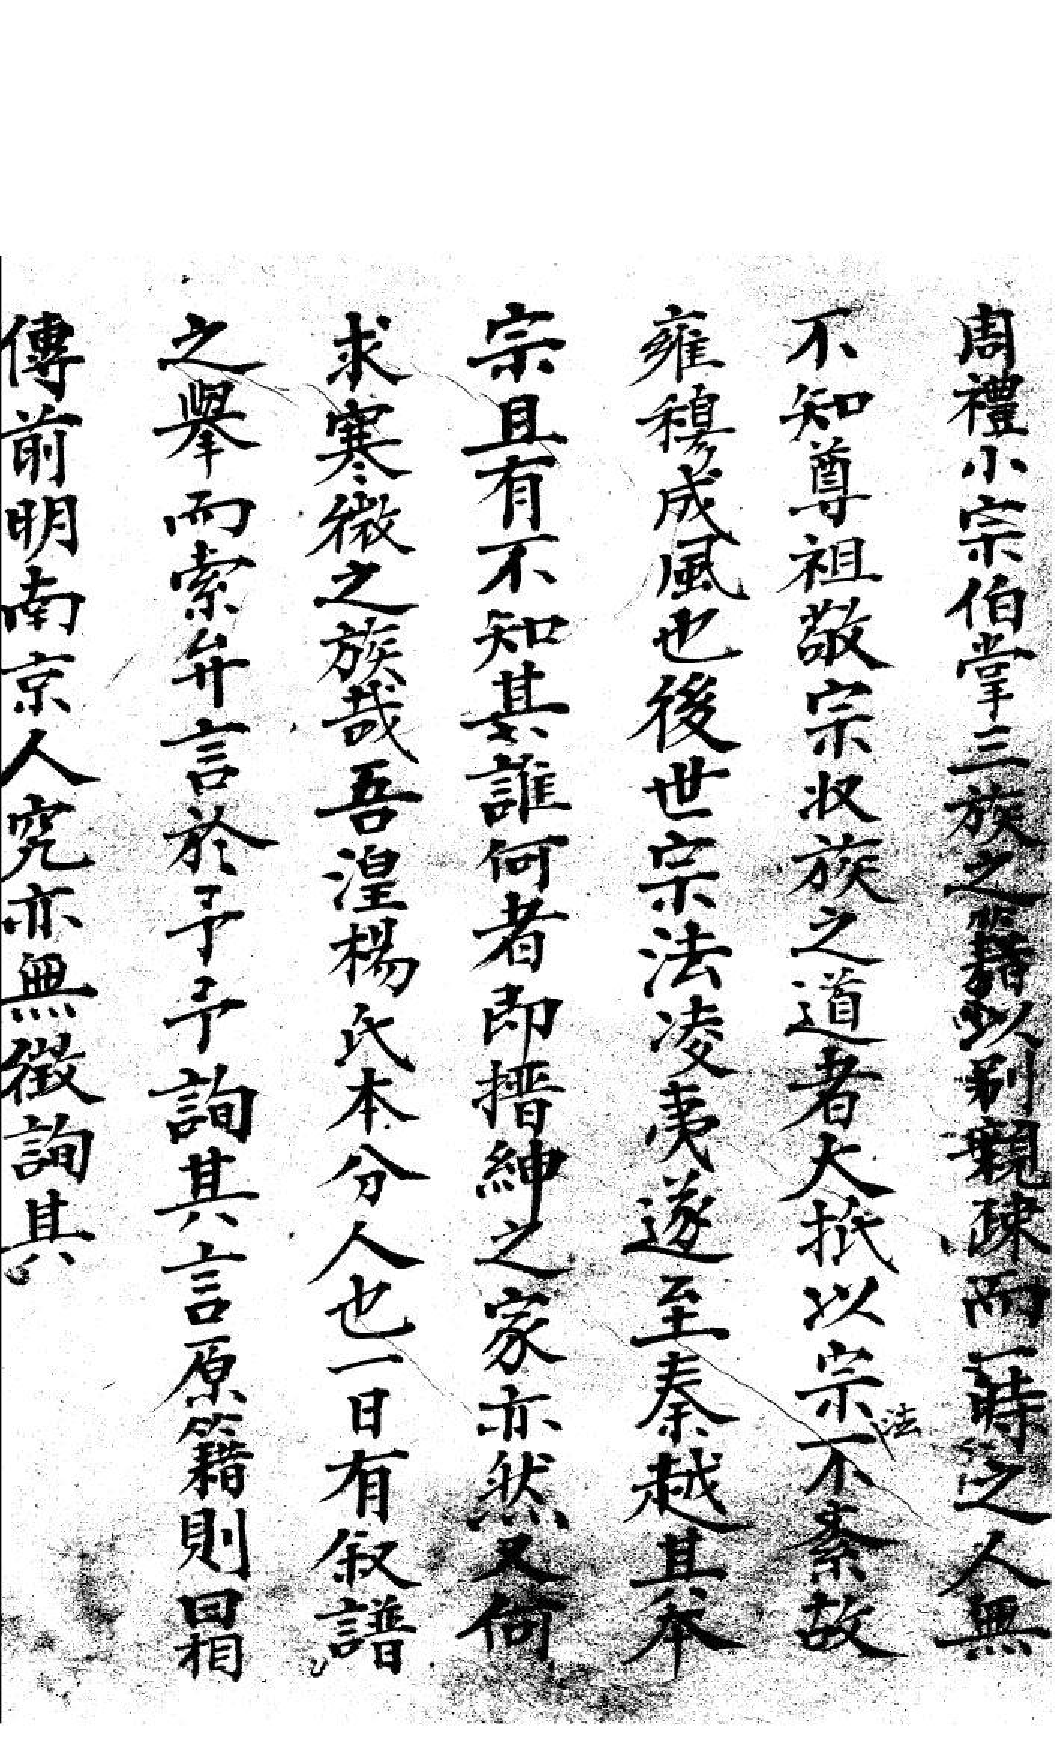 周禮小宗伯掌三族之籍以别親疎而一時之人無
不知尊祖敬宗收族之道者大抵以宗法不紊故
雍穆成風也後世宗法凌夷遂至秦越其本
宗且有不知其誰何者即搢紳之家亦然又何
求寒微之族哉吾湟楊氏本分人也一日有叙譜
之舉而索弁言於予予詢其言原籍則曰相
傳前明南京人究亦無徵詢其